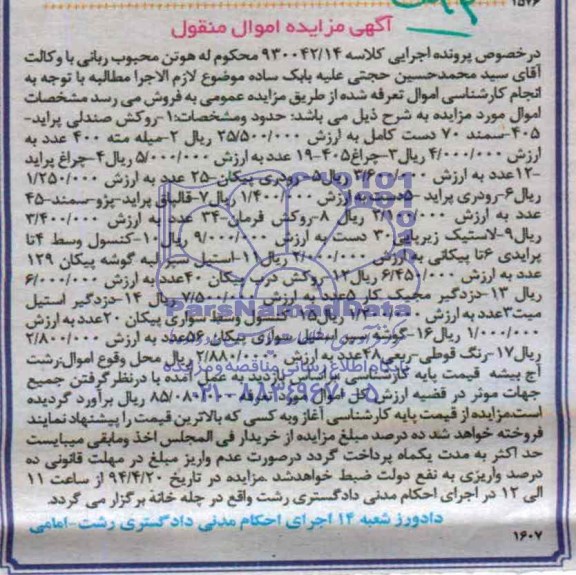 ۱۵۲۶
آگهی مزایده اموال منقول
درخصوص پرونده اجرایی کلاسه ۹۳۰۰۴۲/۱۴ محکوم له هوتن محبوب ربانی با وکالت
آقای سید محمدحسین حجتی علیه بابک ساده موضوع لازم الاجرا مطالبه با توجه به
انجام کارشناسی اموال تعرفه شده از طریق مزایده عمومی به فروش می رسد مشخصات
اموال مورد مزایده به شرح ذیل می باشد: حدود ومشخصات:۱-روکش صندلی پراید-
۴۰۵-سمند ۷۰ دست کامل به ارزش ۲۵/۵۰۰/۰۰۰ ریال ۲-میله مته ۴۰۰ عدد به
ارزش ۴/۰۰۰/۰۰۰ ریال۳-چراغ۴۰۵-۱۹ عدد به ارزش ۵/۰۰۰/۰۰۰ ریال۴-چراغ پراید
-۱۲عدد به ارزش ۳/۶۰۰/۰۰۰ ریال۵-رودری پیکان-۲۵ عدد به ارزش ۱/۲۵۰/۰۰۰
ریال۶-رودری پراید دست به ارزش ۱/۴۰۰/۰۰۰ ریال۷-قالپاق پراید-پژو-سمند-۴۵
عدد به ارزش ریال ۸-روکش فرمان-۳۴ عدد به ارزش ۳/۴۰۰/۰۰۰
ریال۹-لاستیک زیرپایی۳۰ دست به ارزش ۹/۰۰۰/۰۰۰ ریال۱۰-کنسول وسط ۴تا
پرایدی ۶تا پیکانی به ارزش ۲/۰۰۰/۰۰۰ ریال۱۱-استیل سپر لبه گوشه پیکان ۱۲۹
عدد به ارزش ۶/۴۵۰/۰۰۰ ریال۱۲-روکش درب پیکان ۴۰عدد به ارزش ۶/۰۰۰/۰۰۰
ریال ۱۳-دزدگیر مجیک کار۵عدد به ارزش ۷/۵۰۰/۰۰۰ ریال ۱۴-دزدگیر استیل
میت۳عدد به ارزش ریال۱۵-کنسول وسط سواری پیکان ۲۰عدد به ارزش
۱/۰۰۰/۰۰۰ ریال۱۶-گوشه سپر استیل سواری پیکان ۵۶عدد به ارزش ۲/۸۰۰/۰۰۰
ریال۱۷-رنگ قوطی-ربعی۴۸عدد به ارزش ۲/۸۸۰/۰۰۰ ریال محل وقوع اموال:رشت
آج بیشه قیمت پایه کارشناسی براساس بازدید به عمل آمده با درنظرگرفتن جمیع
جهات موثر در قضیه ارزش کل اموال مورد تعرفه ریال برآورد گردیده
است.مزایده از قیمت پایه کارشناسی آغاز وبه کسی که بالاترین قیمت را پیشنهاد نمایند
فروخته خواهد شد ده درصد مبلغ مزایده از خریدار فی المجلس اخذ ومابقی میبایست
حد اکثر به مدت یکماه پرداخت گردد درصورت عدم واریز مبلغ در مهلت قانونی ده
درصد واریزی به نفع دولت ضبط خواهدشد .مزایده در تاریخ ۹۴/۴/۲۰ از ساعت ۱۱
الی ۱۲ در اجرای احکام مدنی دادگستری رشت واقع در چله خانه برگزار می گردد.
دادورز شعبه ۱۴ اجرای احکام مدنی دادگستری رشت-امامی
۱۶۰۷
ParsNamadData
پایگاه اطلاع رسانی مناقصه و مزایده
۰۲۱-۸۸۳۴۹۶۷۰-۵